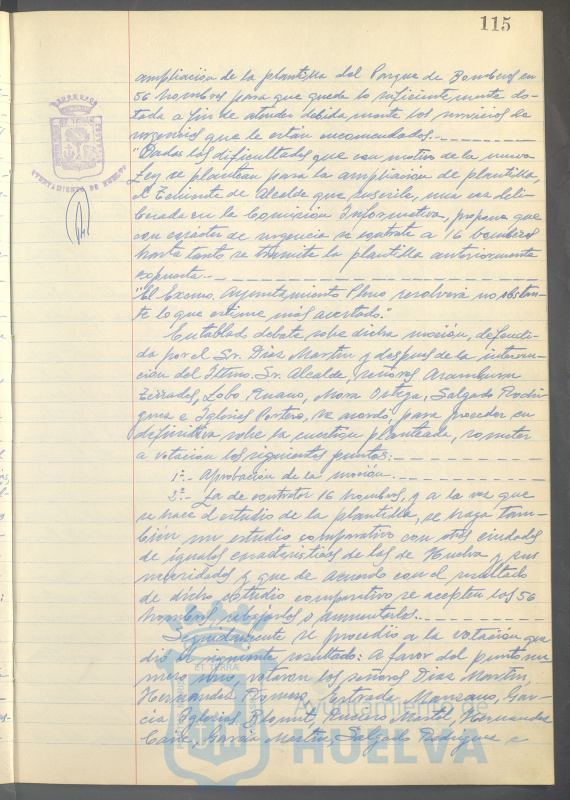 115
ampliación de la plantilla del Parque de Bomberos en
56 hombres para que quede lo suficientemente do-
tada a fin de atender debidamente los servicios de
urgencias que le están encomendados.
"Dadas las dificultades que con motivo de la nueva
Ley se plantean para la ampliación de plantilla,
el Teniente de Alcalde que suscribe, una vez deli-
berada en la Comisión Informativa, propone que
con carácter de urgencia se contrate a 16 bomberos
hasta tanto se tramite la plantilla anteriormente
expuesta.
"El Excmo. Ayuntamiento Pleno resolverá no obstan-
te lo que estime más acertado."
Entablado debate sobre dicha moción, defendi-
da por el Sr. Díaz Martín y después de la interven-
ción del Iltmo. Sr. Alcalde, señores Aramburu
Terrades, Lobo Ruano, Mora Ortega, Salgado Rodrí-
guez e Iglesias Portero, se acordó, para proceder en
definitiva sobre la cuestión planteada, someter
a votación los siguientes puntos:
1º.- Aprobación de la moción.
2º.- La de contratar 16 hombres, y a la vez que
se hace el estudio de la plantilla, se haga tam-
bién un estudio comparativo con otras ciudades
de iguales características de las de Huelva y sus
necesidades y que de acuerdo con el resultado
de dicho estudio comparativo se acepten los 56
hombres, rebajarlos o aumentarlos.
Seguidamente se procedió a la votación que
dio el siguiente resultado: A favor del punto nú-
mero uno, votaron los señores Díaz Martín,
Hernández Romero, Estrada Manzano, Gar-
cía Iglesias, Martel, Hernández
García Martín, Salgado Rodríguez e
AYUNTAMIENTO DE HUELVA
Ayuntamiento de
HUELVA